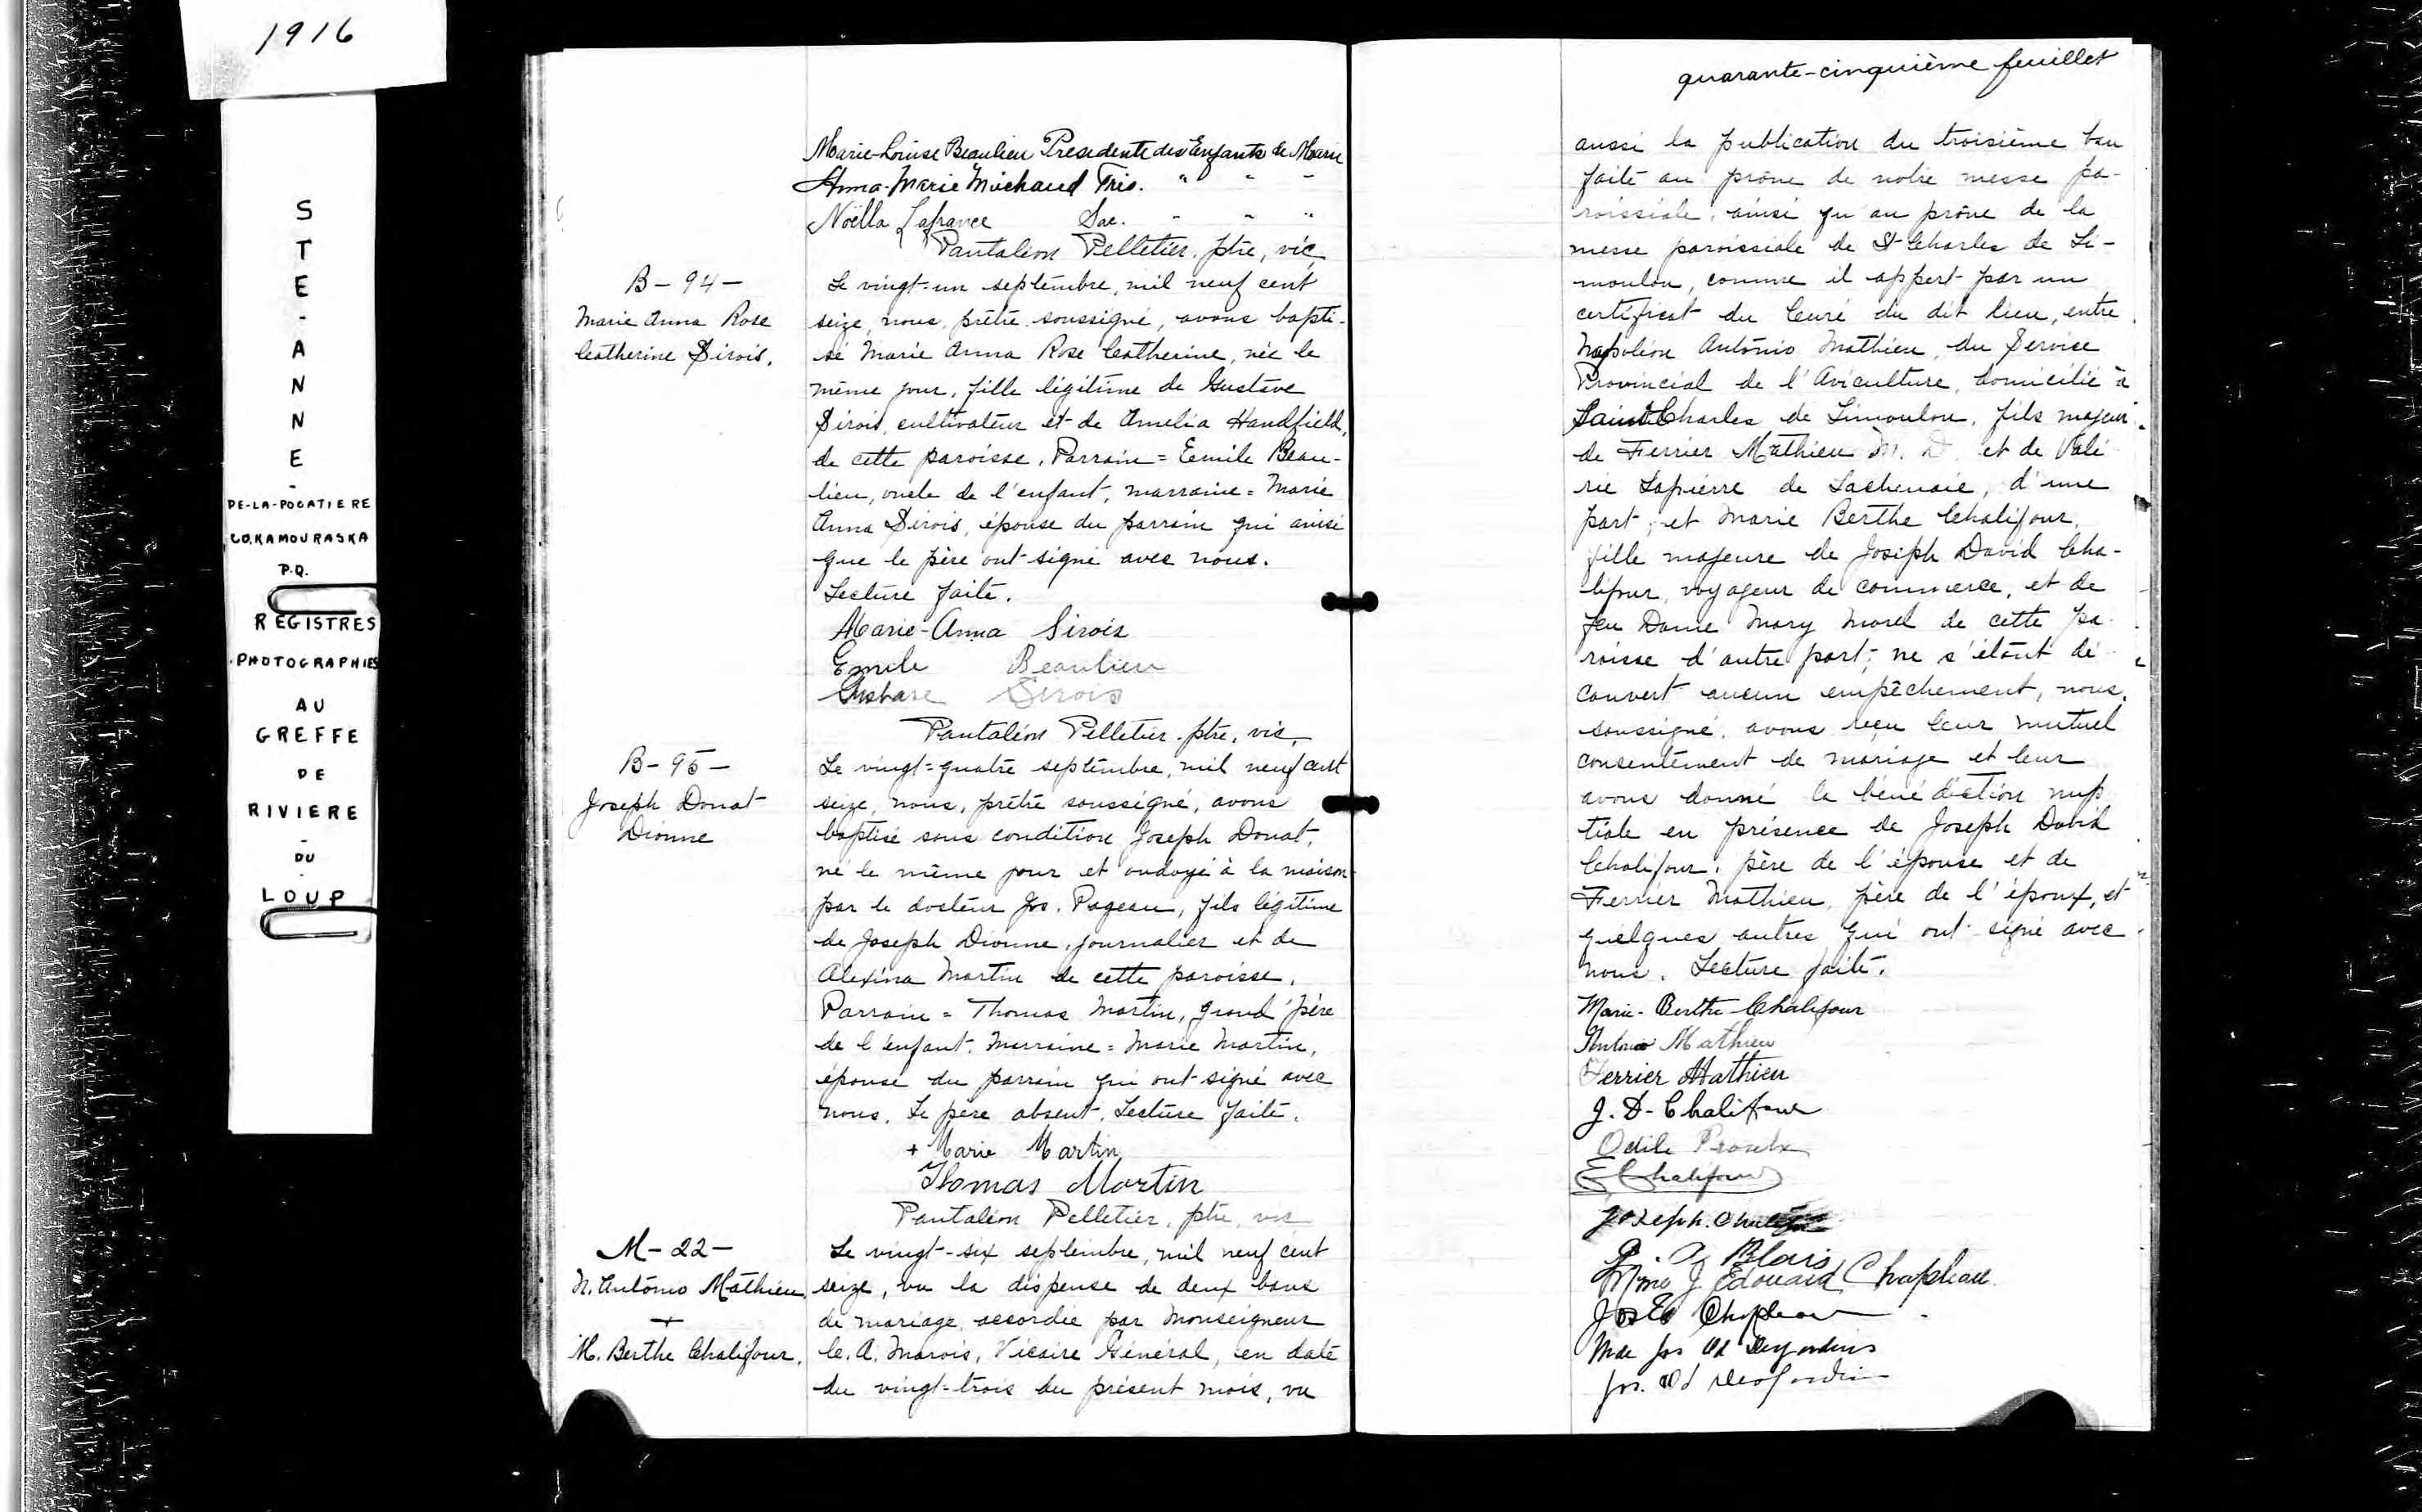 1916
S
T
E
-
A
N
N
E
-
DE-LA-POCATIERE
CO. KAMOURASKA
P.Q.
REGISTRES
PHOTOGRAPHIES
AU
GREFFE
DE
RIVIERE
-
DU
-
LOUP
Marie-Louise Beaulieu Presidente des Enfants de Marie
Anna-Marie Michaud Trés. " " "
Noëlla Lafrance Sec. " " "
Pantaléon Pelletier, ptre, vic.
B-94-
Marie Anna Rose
Catherine Sirois.
Le vingt-un septembre, mil neuf cent
seize, nous, prêtre soussigné, avons bapti-
sé Marie Anna Rose Catherine, née le
même jour, fille légitime de Gustave
Sirois, cultivateur et de Amelia Handfield,
de cette paroisse. Parrain = Emile Beau-
lieu, oncle de l'enfant, marraine = Marie
Anna Sirois, épouse du parrain qui ainsi
que le père ont signé avec nous.
Lecture faite.
Marie-Anna Sirois
Emile Beaulieu
Gustave Sirois
Pantaléon Pelletier, ptre, vic.
B-95-
Joseph Donat
Dionne
Le vingt-quatre septembre, mil neuf cent
seize, nous, prêtre soussigné, avons
baptisé sous condition Joseph Donat,
né le même jour et ondoyé à la maison
par le docteur Jos. Pageau, fils légitime
de Joseph Dionne, journalier et de
Alexina Martin de cette paroisse.
Parrain = Thomas Martin, grand'père
de l'enfant. Marraine = Marie Martin,
épouse du parrain qui ont signé avec
nous. Le père absent. Lecture faite.
+ Marie Martin
Thomas Martin
Pantaléon Pelletier, ptre, vic
M-22-
N. Antonio Mathieu
+
M. Berthe Chalifour.
Le vingt-six septembre, mil neuf cent
seize, vu la dispense de deux bans
de mariage accordée par Monseigneur
C. A. Marois, Vicaire Général, en date
du vingt-trois du présent mois, vu
quarante-cinquième feuillet
aussi la publication du troisième ban
faite au prône de notre messe pa-
roissiale, ainsi qu'au prône de la
messe paroissiale de St Charles de Li-
moulou, comme il appert par un
certificat du Curé du dit lieu, entre
Napoléon Antonio Mathieu, du Service
Provincial de l'Aviculture, domicilié à
Saint Charles de Limoulou, fils majeur
de Ferrier Mathieu M. D. et de Valé
rie Lapierre de Lachenaie, d'une
part; et Marie Berthe Chalifour,
fille majeure de Joseph David Cha-
lifour, voyageur de commerce, et de
feu Dame Mary Morel de cette pa-
roisse d'autre part; ne s'étant dé
couvert aucun empêchement, nous,
soussigné, avons reçu leur mutuel
consentement de mariage et leur
avons donné la bénédiction nup
tiale en présence de Joseph David
Chalifour, père de l'épouse et de
Ferrier Mathieu, père de l'époux, et
quelques autres qui ont signé avec
nous. Lecture faite.
Marie-Berthe Chalifour
Antonio Mathieu
Ferrier Mathieu
J. D-Chalifour
Odile Proulx
E Chalifour
Joseph. Chalifour
Blais
Mme J. Edouard Chapleau
Jos Ed Chapleau
Mde Jos Od Desjardins
Jos. Od Desjardins